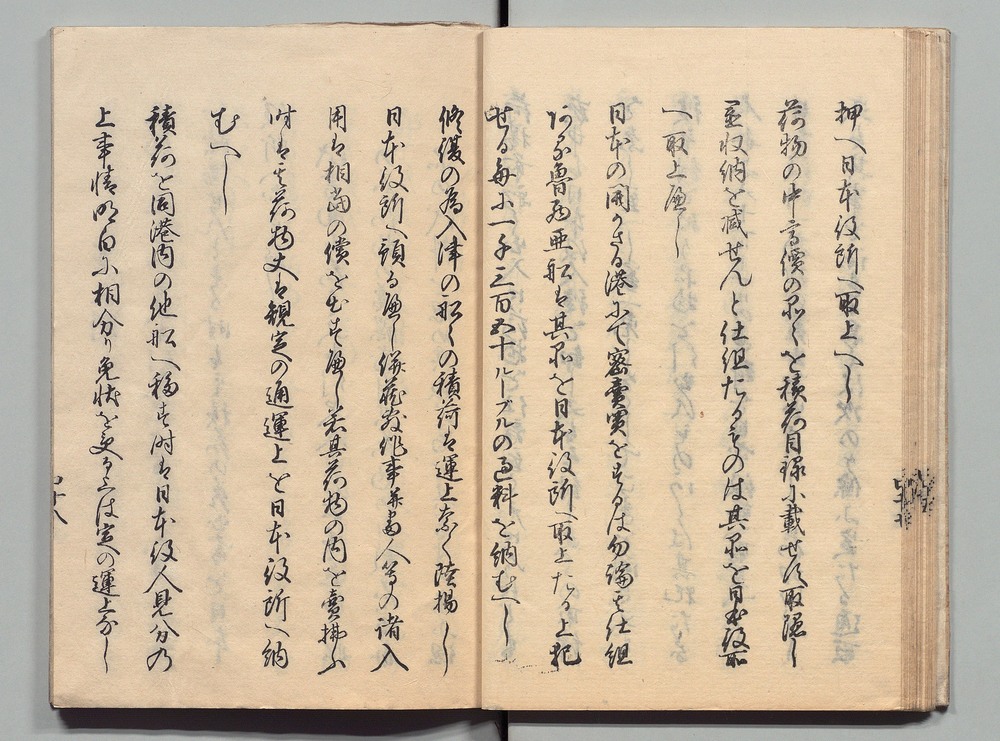 押へ日本役所へ取上へし
荷物の中高價の品々を積荷目録に載せす取隱し
亜収納を減せんと仕組たるものは其品を日本役所
へ取上へし
日本の開かさる港にて密賣買をするは勿論其仕組
魯西亜船は其品を日本役所へ取上たる上犯
せる毎に一千三百五十ルーブルの過料を納むへし
修復の為入津の船々の積荷は運上なく陸揚し
日本役所へ預る へし 蔵敷作事并番人等の諸入
用は相當の償を出すへし若其荷物の内を賣拂ふ
時は其荷物丈は規定の通運上を日本役所へ納
むへし
積荷を同港内の他船へ移す時は日本役人見分の
上事情明白に相分り免状を受る上は定の運上なし
四十八